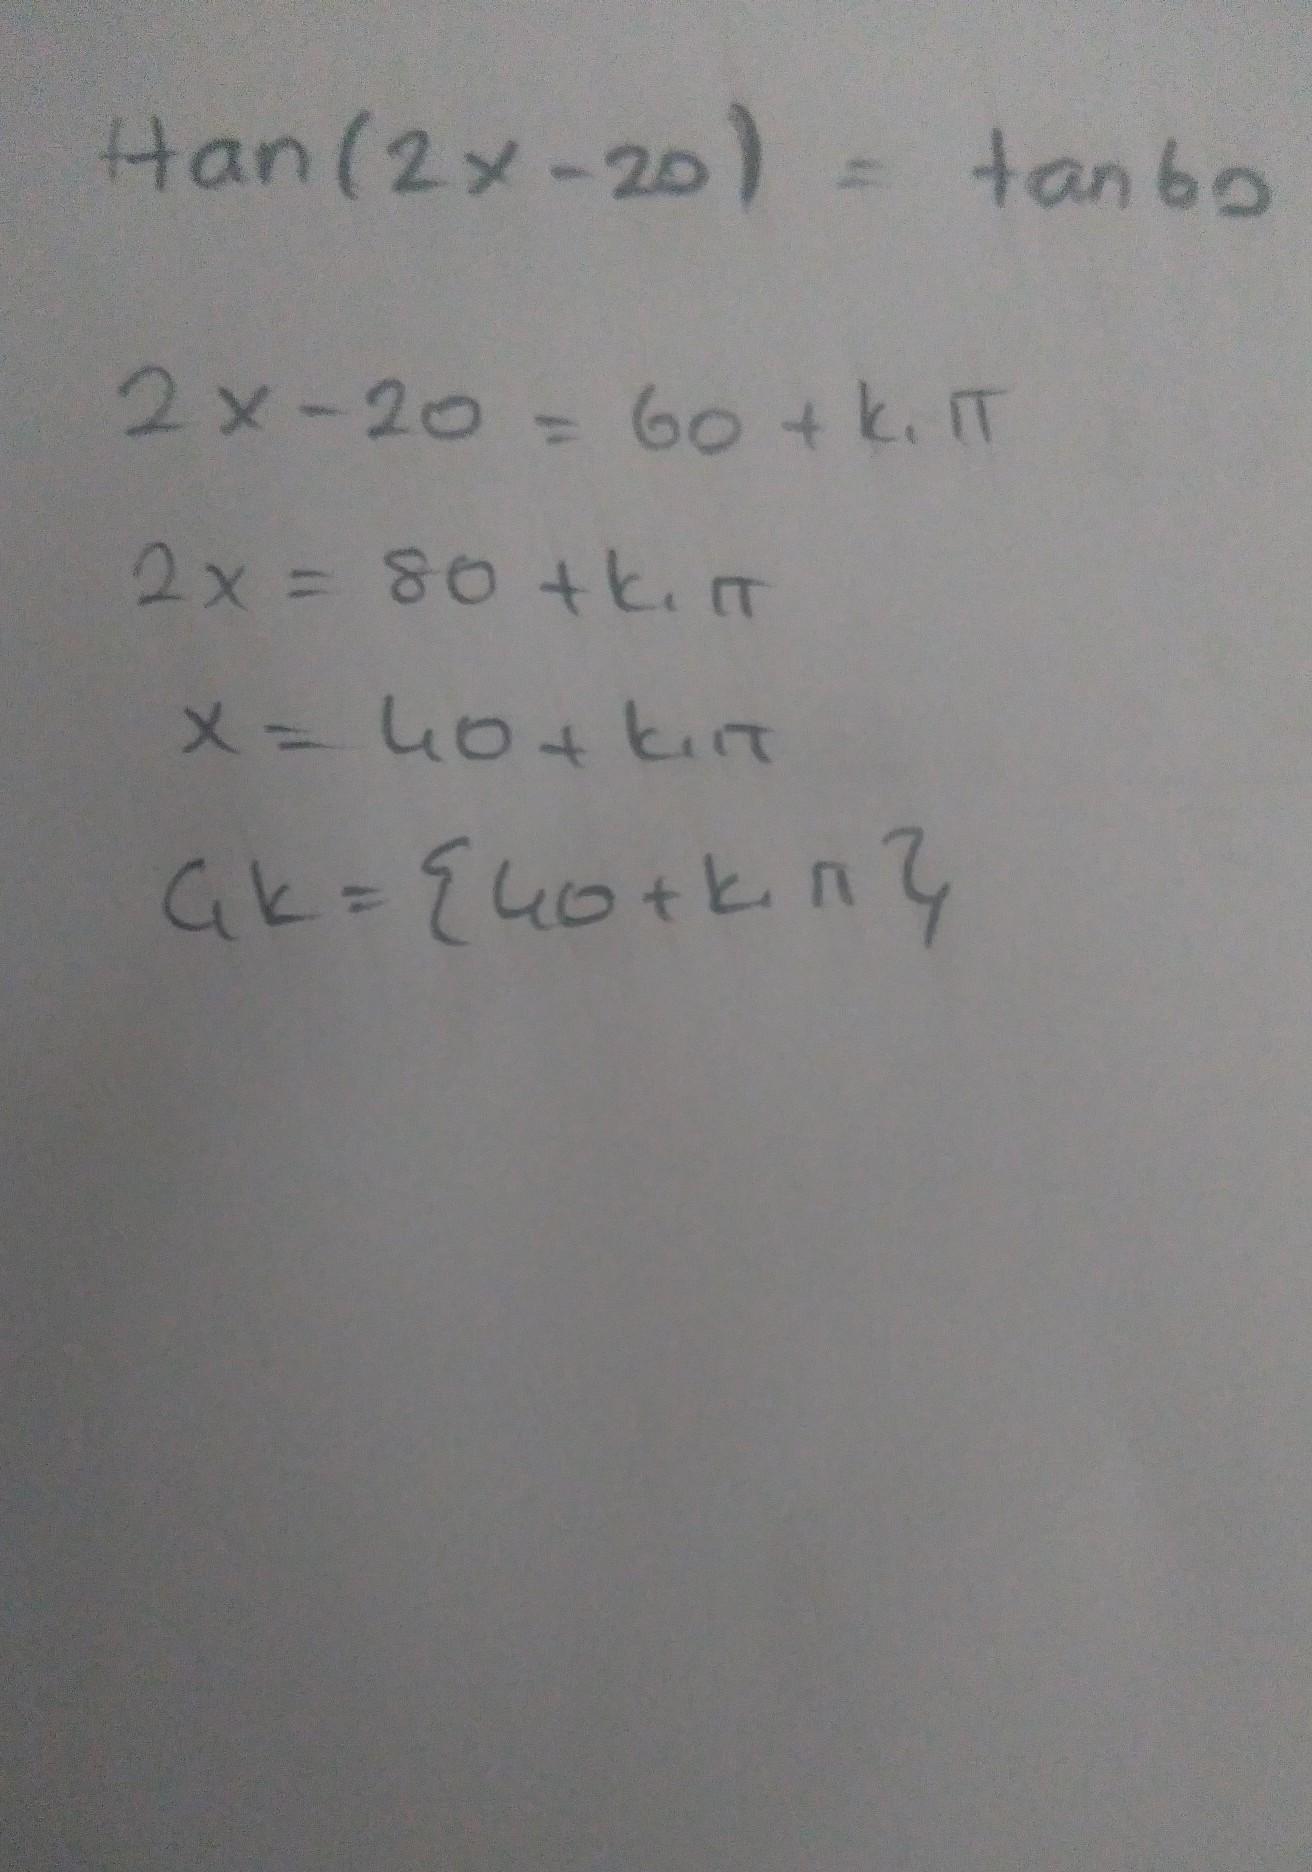 tan(2x-20) = tan60
2x-20 = 60 + k.π
2x = 80 + k.π
x = 40 + k.π
Çk = {40 + k.π}